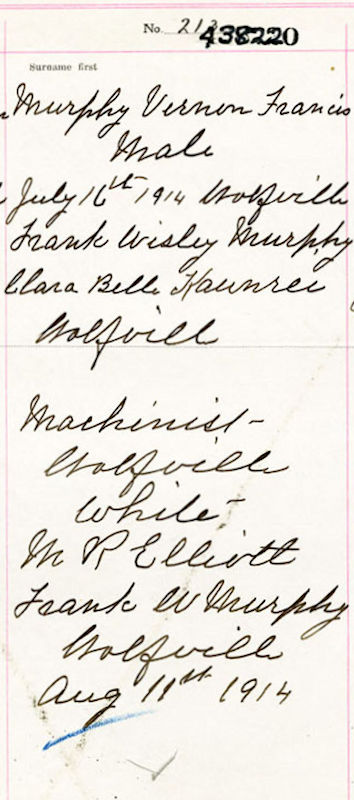 No. 213
438220
Surname first
Murphy Vernon Francis
Male
July 16th 1914 Wolfville
Frank Wisley Murphy
Clara Belle
Wolfvill
Machinist
Wolfville
White
M R Elliott
Frank W Murphy
Wolfville
Aug 11th 1914